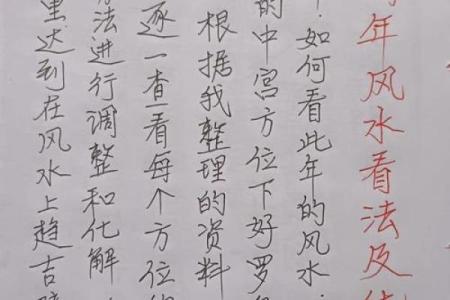 年风水看法及
如何看此年的风水:
的中宫方位下好罗
根据我整理的资料
逐一查看每个方位
法进行调整和化解
里达到在风水上趋吉